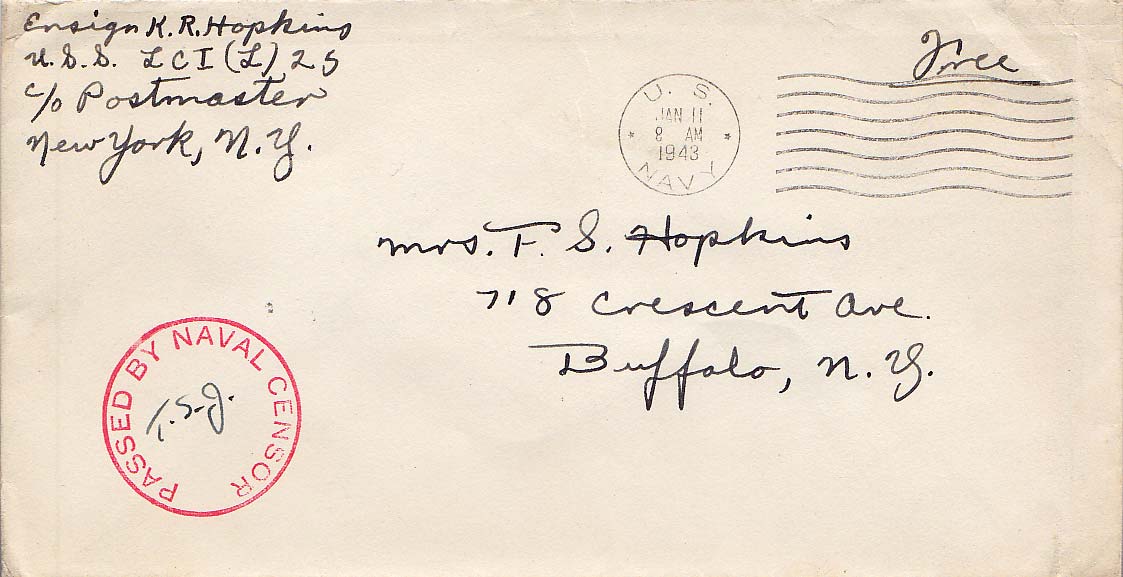 Ensign K. R. Hopkins
U.S.S. LCI (L) 25
c/o Postmaster
New York, N.Y.
Free
U. S.
JAN 11
8 AM
1943
NAVY
Mrs. F. S. Hopkins
718 Crescent Ave.
Buffalo, N.Y.
PASSED BY NAVAL CENSOR
T.S.J.